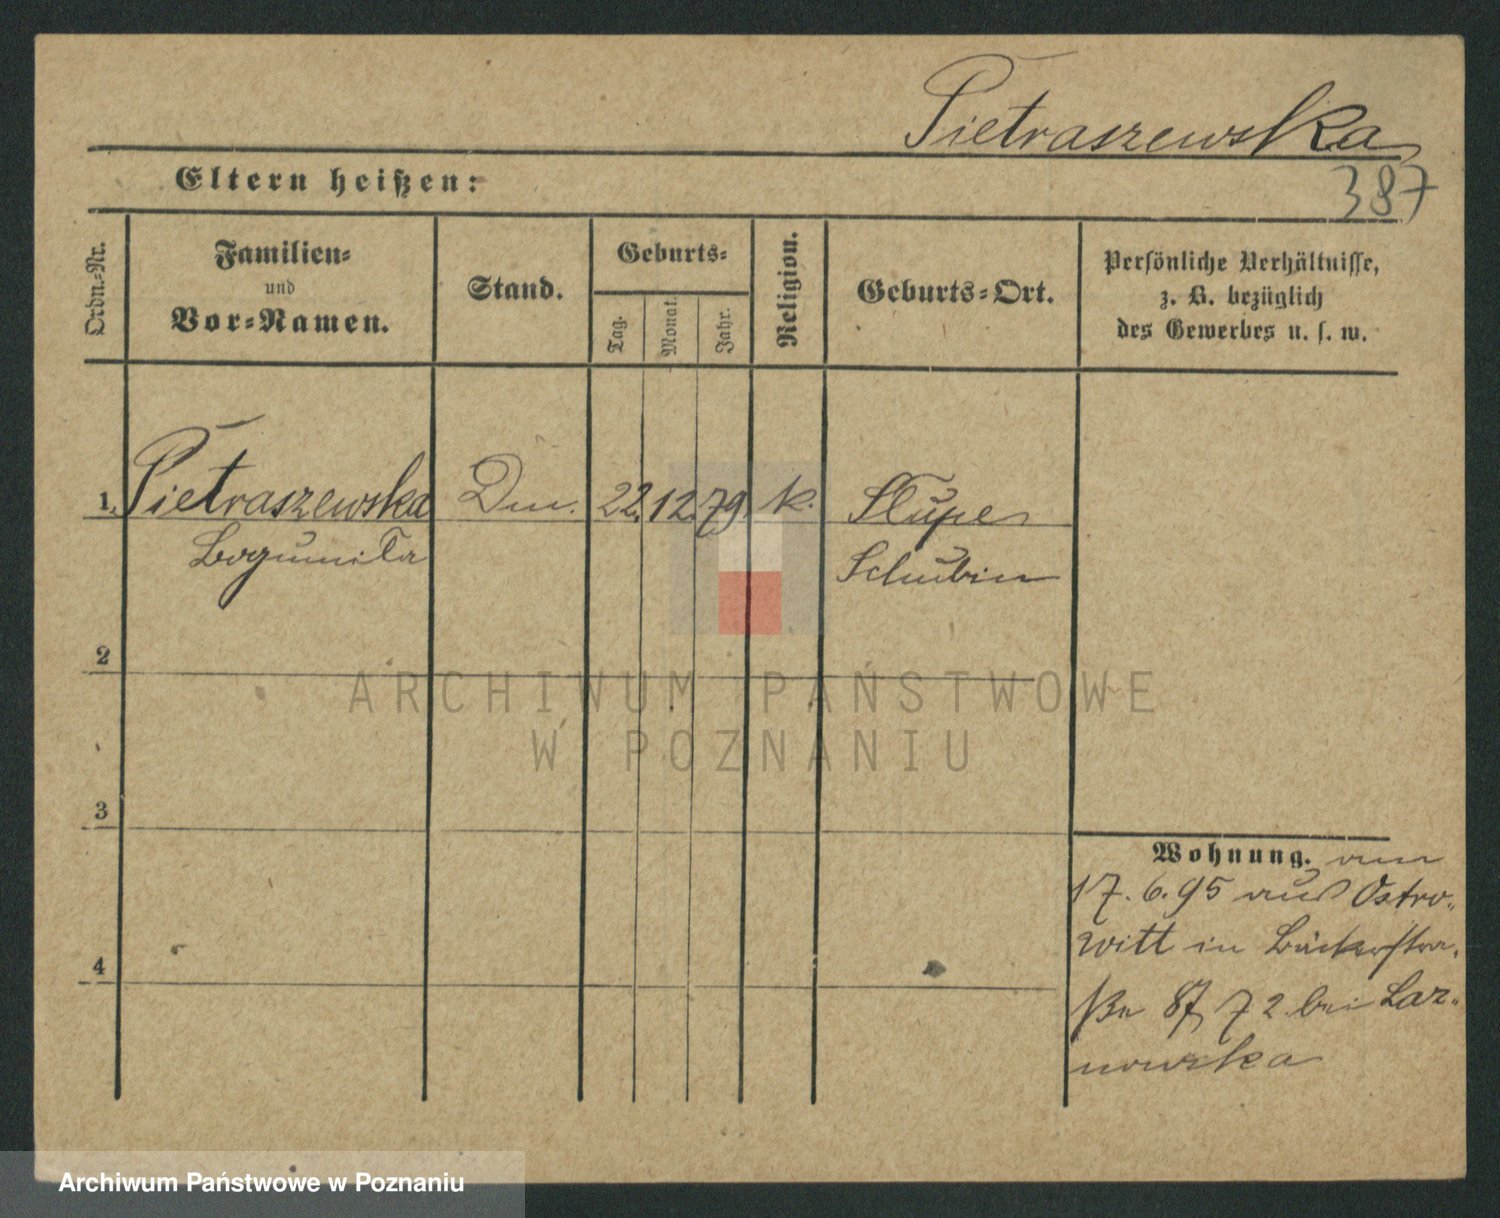 Pietraszewska
Eltern heißen:
387
Ordn.-Nr.
Familien-
und
Vor-Namen.
Stand.
Geburts-
Tag.
Monat.
Jahr.
Religion.
Geburts-Ort.
Persönliche Verhältnisse,
z. B. bezüglich
des Gewerbes u. s. w.
1. Pietraszewska 22. 12. 79. k. Slupe
Bogumila Schubin
2
ARCHIWUM PAŃSTWOWE
W POZNANIU
3
Wohnung. am
17. 6. 95 aus Ostro-
witt in Bäckerstra-
ße 87, 72 bei Laz-
nowska
4
Archiwum Państwowe w Poznaniu